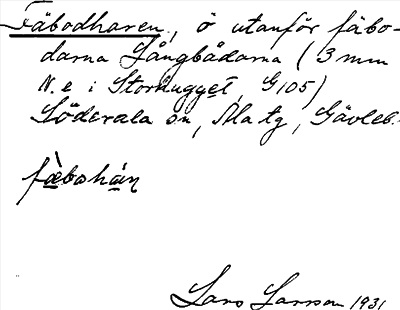 Fäbodharen, ö utanför fäbo-
darna Långbådarna (3 mm
N.e i Storhugget, G105)
Söderala sn, Ala tg, Gävleb.
fæ̀bohán
Lars Larsson 1931